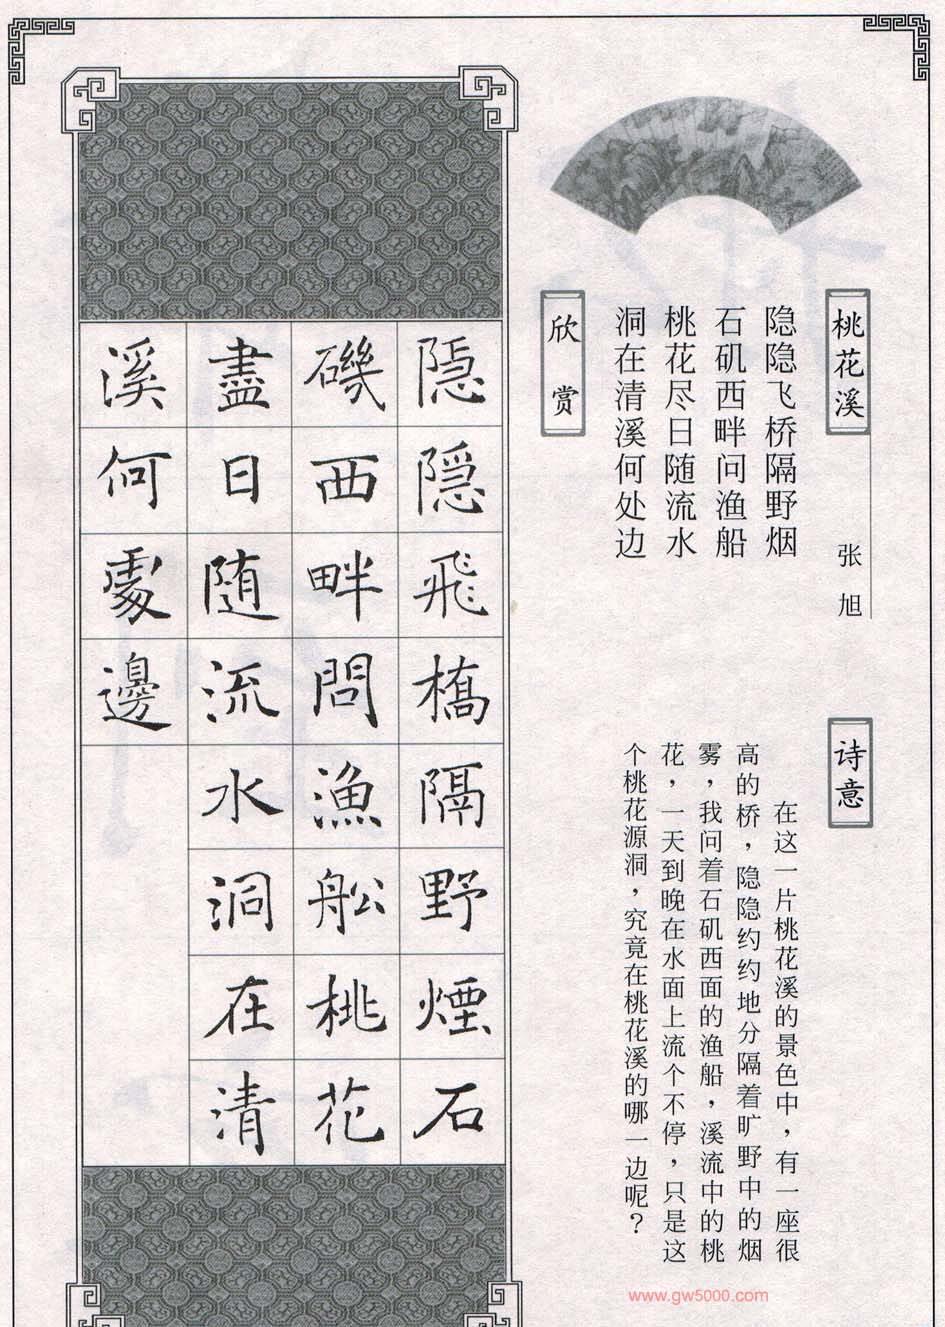 桃花溪
张旭
隐隐飞桥隔野烟
石矶西畔问渔船
桃花尽日随流水
洞在清溪何处边
诗意
在这一片桃花溪的景色中，有一座很
高的桥，隐隐约约地分隔着旷野中的烟
雾，我问着石矶西面的渔船，溪流中的桃
花，一天到晚在水面上流个不停，只是这
个桃花源洞，究竟在桃花溪的哪一边呢？
欣赏
隱隱飛橋隔野煙石
磯西畔問漁船桃花
盡日随流水洞在清
溪何處邊
www.gw5000.com